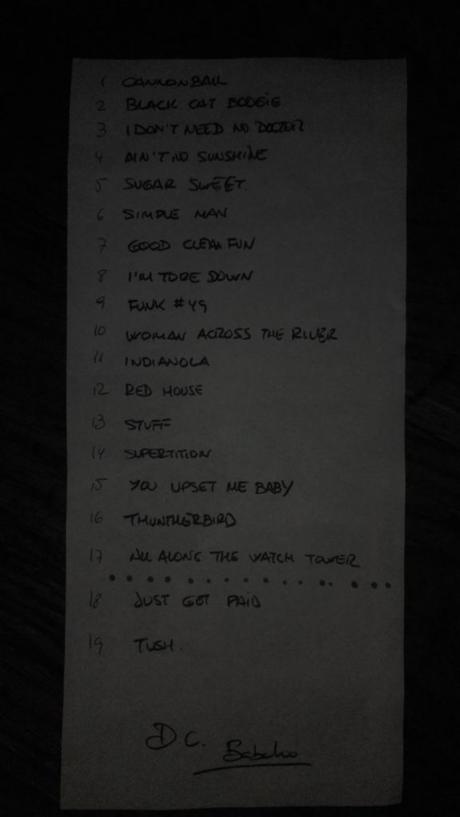 1 CANNONBALL
2 BLACK CAT BOOGIE
3 I DON'T NEED NO DOCTOR
4 AIN'T NO SUNSHINE
5 SUGAR SWEET.
6 SIMPLE MAN
7 GOOD CLEAN FUN
8 I'M TORE DOWN
9 FUNK #49
10 WOMAN ACROSS THE RIVER
11 INDIANOLA
12 RED HOUSE
13 STUFF
14 SUPERTITION
15 YOU UPSET ME BABY
16 THUNTHERBIRD
17 ALL ALONG THE WATCH TOWER
18 JUST GET PAID
19 TUSH.
D.C.